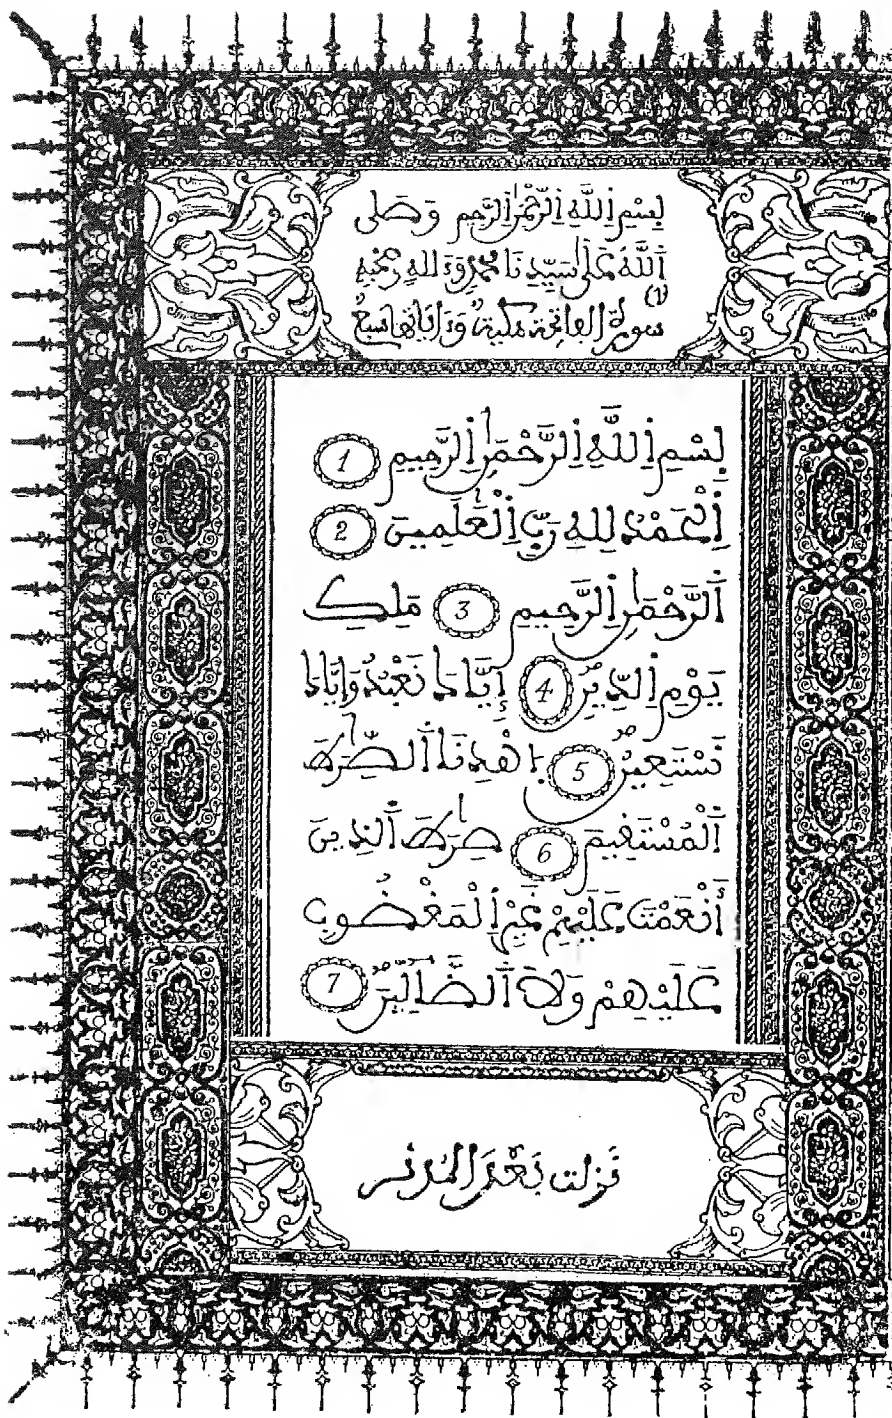 بِسْمِ اِللَّهِ اِلرَّحْمَٰنِ اِلرَّحِيمِ وَصَلَّى
اَللَّهُ عَلَىٰ سَيِّدِنَا مُحَمَّدٍ وَءَالِهِ وَصَحْبِهِ
(1)
سورة الفاتحة مكية وءاياتها سبع
بِسْمِ اِللَّهِ اِلرَّحْمَٰنِ اِلرَّحِيمِ 1
اِ۬لْحَمْدُ لِلهِ رَبِّ اِ۬لْعَٰلَمِينَ 2
اَ۬لرَّحْمَٰنِ اِ۬لرَّحِيمِ 3 مَلِكِ
يَوْمِ اِ۬لدِّينِ 4 إِيَّاكَ نَعْبُدُ وَإِيَّاكَ
نَسْتَعِينُ 5 اِ۪هْدِنَا اَ۬لصِّرَٰطَ
اَ۬لْمُسْتَقِيمَ 6 صِرَٰطَ اَ۬لذِينَ
أَنْعَمْتَ عَلَيْهِمْ غَيْرِ اِ۬لْمَغْضُوبِ
عَلَيْهِمْ وَلَا اَ۬لضَّآلِّينَ 7
نزلت بَعْدَ المدثر